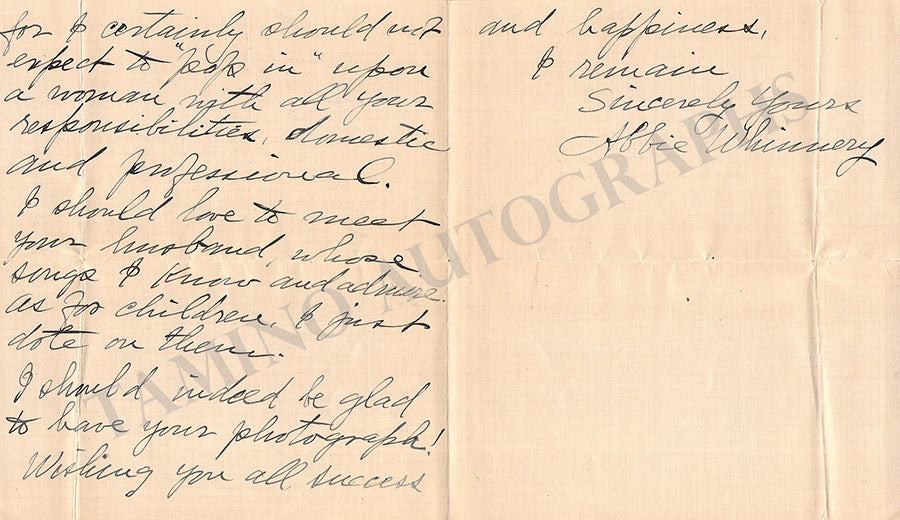 for I certainly should not
expect to "pop in" upon
a woman with all your
responsibilities, domestic
and professional.
I should love to meet
your husband, whose
songs I know and admire.
As for children, I just
dote on them.
I should indeed be glad
to have your photograph!
Wishing you all success
and happiness,
I remain
Sincerely Yours
Abbie Whinnery
TAMINO AUTOGRAPHS